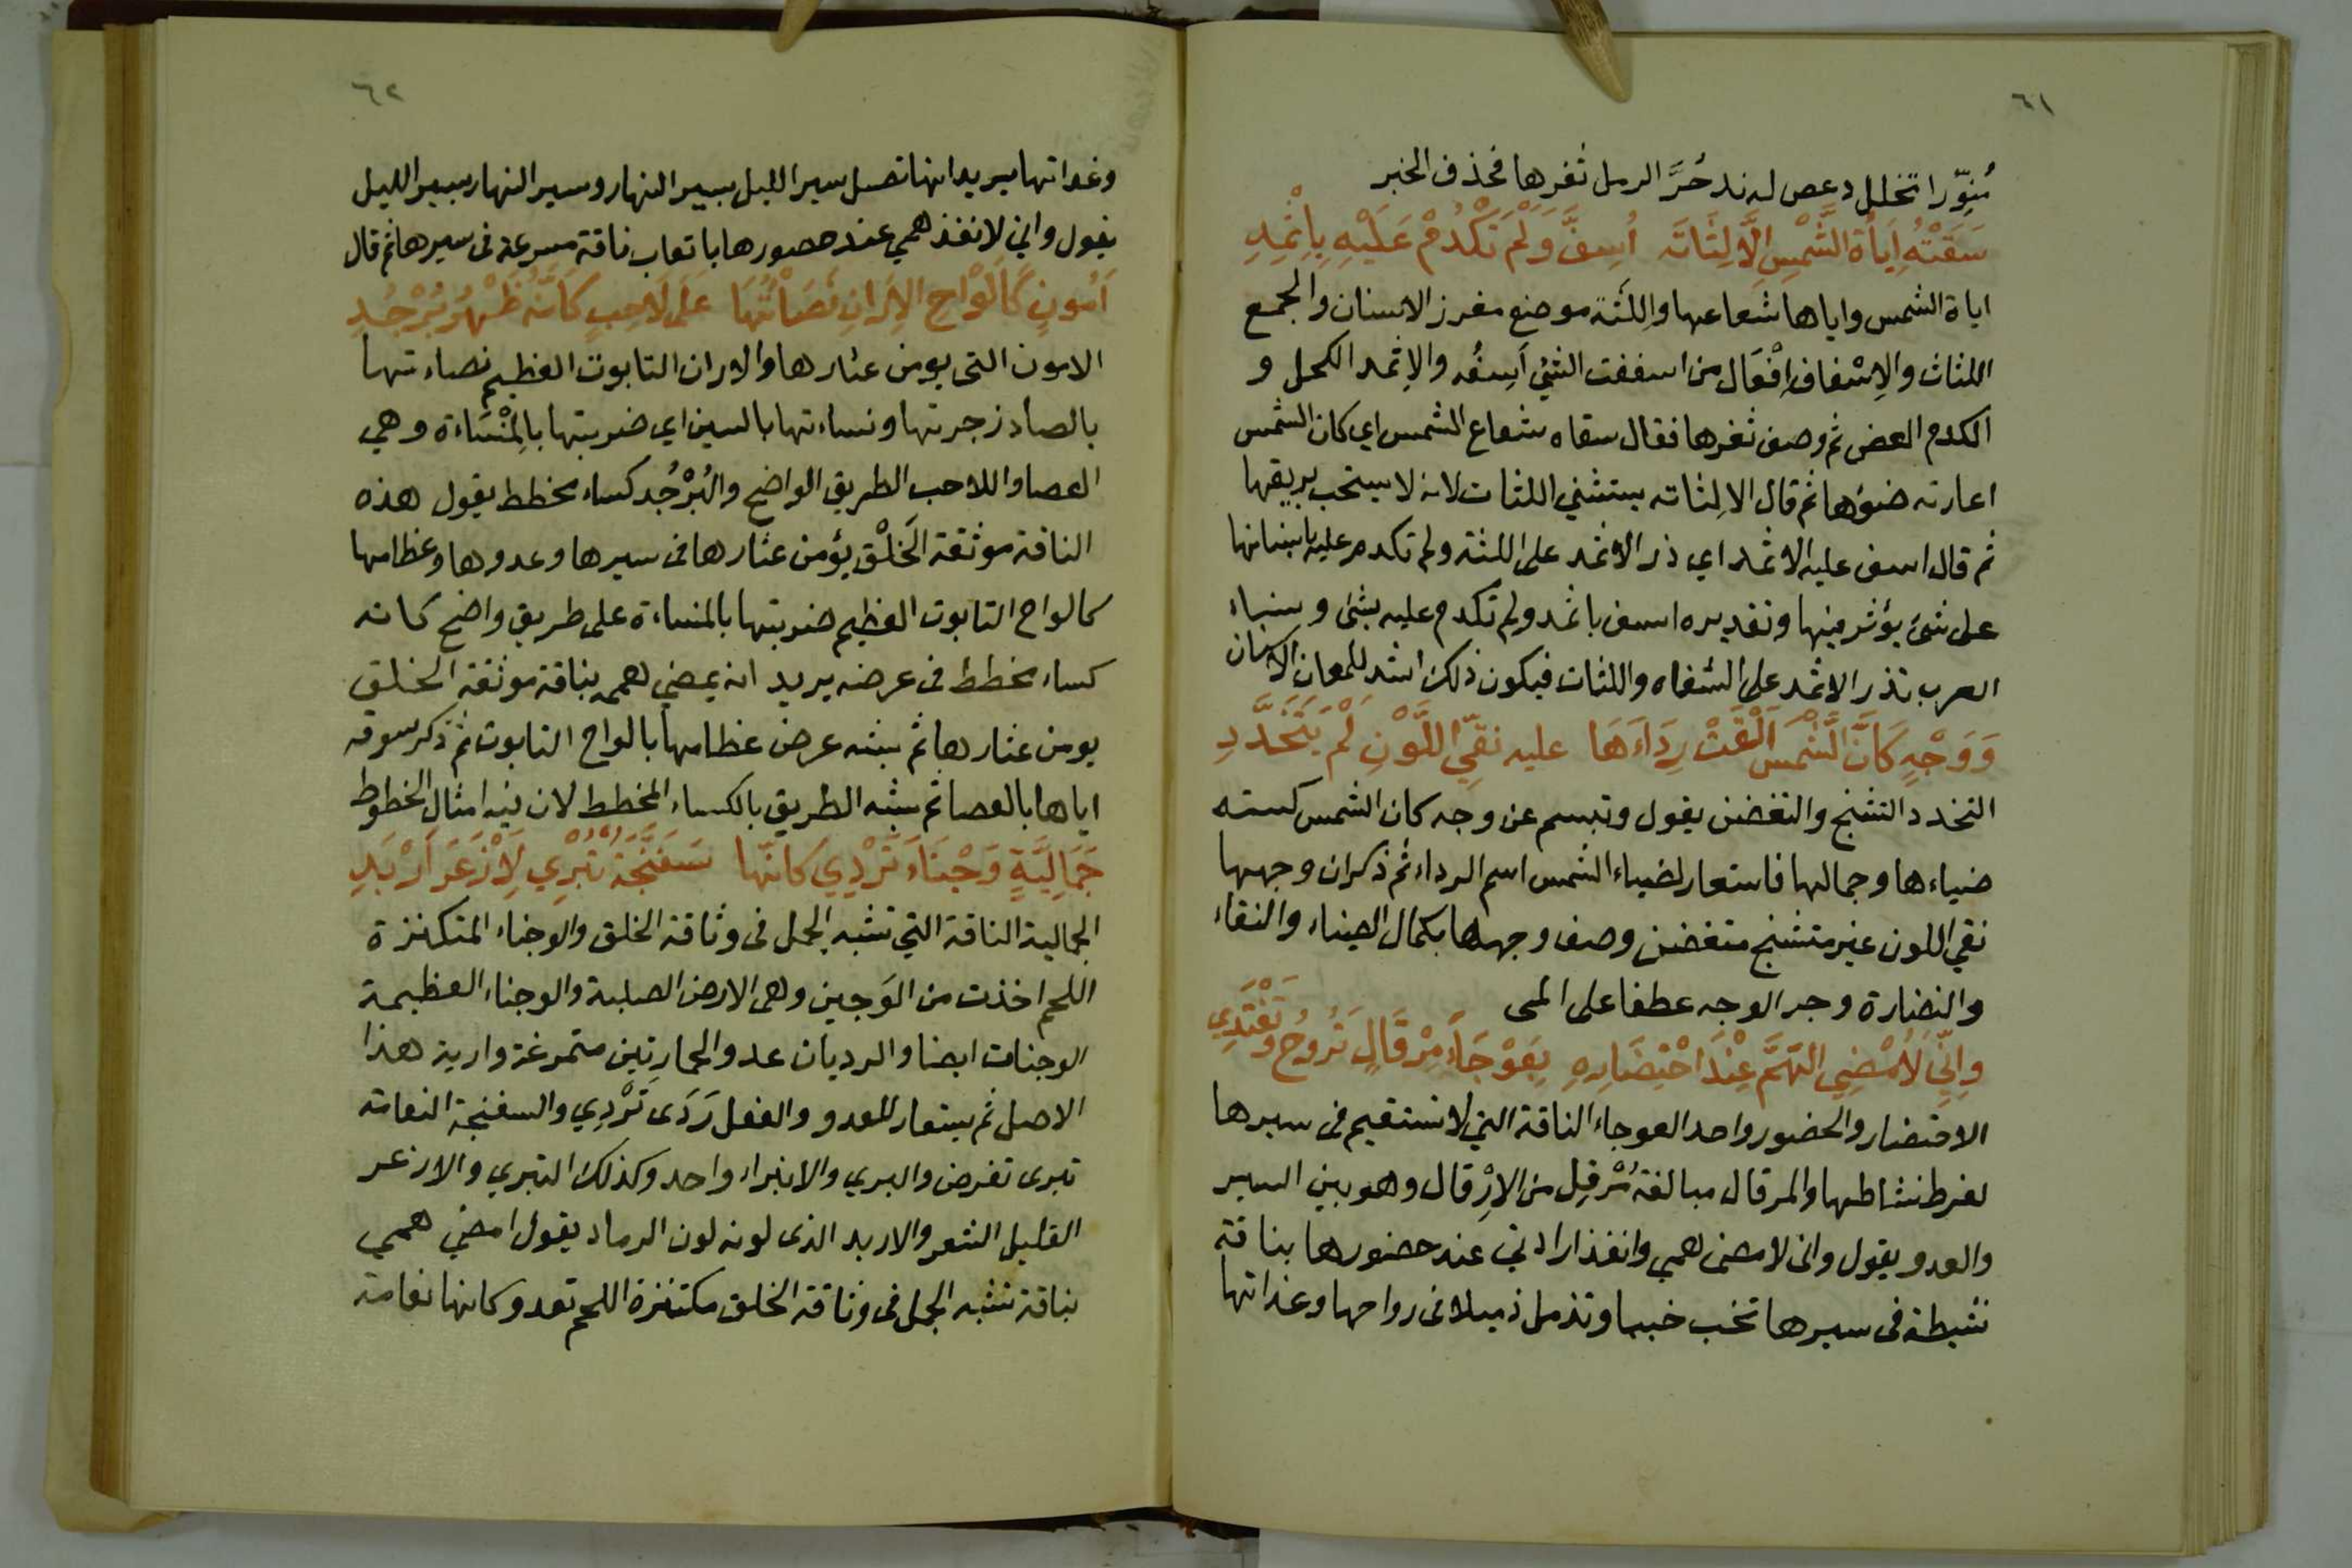 ٦١
مُنوِّرا تخلل دعص له ند حُرَّ الرمل ثغرها فحذف الخبر
سَقَتْهُ اِيَاةُ الشَّمْسِ اِلَّا لِثَاتَه اُسِفَّ وَلَمْ تَكْدُمْ عَلَيْهِ بِاِثْمِدِ
اياة الشمس واياها شعاعها واللثة موضع مغرز الاسنان والجمع
اللثاث والاِسْفاف اِفْعَال من اسففت الشئ اَسِفُّه والاِثمد الكحل و
الكدم العض ثم وصف ثغرها فقال سقاه شعاع الشمس اي كان الشمس
اعارته ضوؤها ثم قال الا لِثاته يستثني اللثات لانه لا يستحب بريقها
ثم قال اسف عليه الاثمد اي ذر الاثمد على اللثه ولم تكدم عليه باسنانها
على شئ يؤثر فيها وتقديره اسف باثمد ولم تكدم عليه بشئ ونساء
العرب تذر الاثمد على الشفاه واللثات فيكون ذلك اشد للمعان الاسنان
وَوَجْهٍ كَاَنَّ الشَّمْسَ اَلْقَتْ رِدَاءَهَا عليه نقِّي اللَّوْنِ لَمْ يَتَخَدَّدِ
التخدد التشنج والتغضن يقول وتبسم عن وجه كان الشمس كسته
ضياءها وجمالها فاستعار لضياء الشمس اسم الرداء ثم ذكر ان وجهها
نقي اللون غير متشنج متغضن وصف وجهها بكمال الضياء والنقاء
والنضارة وجر الوجه عطفا على المى
واِنِّي لَاُمْضِي الهَمَّ عِنْدَ احْتِضَارِهِ بِعَوْجَاءَ مِرْقَالٍ تَرُوحُ وَتَغْتَدِي
الاحتضار والحضور واحد العوجاء الناقة التي لا تستقيم فى سيرها
لفرط نشاطها والمرقال مبالغة مُرْقِل من الاِرْقال وهو بين السير
والعدو يقول وانى لامضى همي وانفذ ارادتي عند حضورها بناقة
نشيطة فى سيرها تخب خببا وتذمل ذميلا فى رواحها وغداتها
٦٢
وغداتها يريد انها تصل سير الليل بسير النهار وسير النهار بسير الليل
يقول واني لانفذ همي عند حضورها باتعاب ناقة مسرعة فى سيرها ثم قال
اَمُونٍ كَاَلْوَاحِ الاِرَانِ نَصَاْتُهَا عَلَى لَاحِبٍ كَاَنَّهُ ظَهْرُ بُرْجُدِ
الامون التى يومن عثارها والاران التابوت العظيم نصاءتها
بالصاد زجرتها ونساءتها بالسين اي ضربتها بالمِنْسَاءة وهي
العصا واللاحب الطريق الواضح والبُرْجُد كساء مخطط يقول هذه
الناقة موثقة الخَلْق يؤمن عثارها فى سيرها وعدوها وعظامها
كالواح التابوت العظيم ضربتها بالمنساءة على طريق واضح كانه
كساء مخطط فى عرضه يريد انه يمضي همه بناقة موثقة الخلق
يومن عثارها ثم شبه عرض عظامها بالواح التابوت ثم ذكر سوقه
اياها بالعصا ثم شبه الطريق بالكساء المخطط لان فيه امثال الخطوط
جَمَالِيَّةٍ وَجْنَاءَ تَرْدِي كَاَنَّها سَفَنَّجَةٌ تَبْرِي لِاَزْعَرَ اَرْبَدِ
الجمالية الناقة التي تشبه الجمل فى وثاقة الخلق والوجناء المتكنزة
اللحم اخذت من الوَجين وهى الارض الصلبة والوجناء العظيمة
الوجنات ايضا والرديان عدو الحمار بين متمرغة وارية هذا
الاصل ثم يستعار للعدو والفعل رَدَى تَرْدِي والسفنجة النعامة
تبرى تعرض والبري والانبراء واحد وكذلك التبري والازعر
القليل الشعر والاربد الذى لونه لون الرماد يقول امضي همي
بناقة تشبه الجمل فى وثاقة الخلق مكتنزة اللحم تعدو كانها نعامة